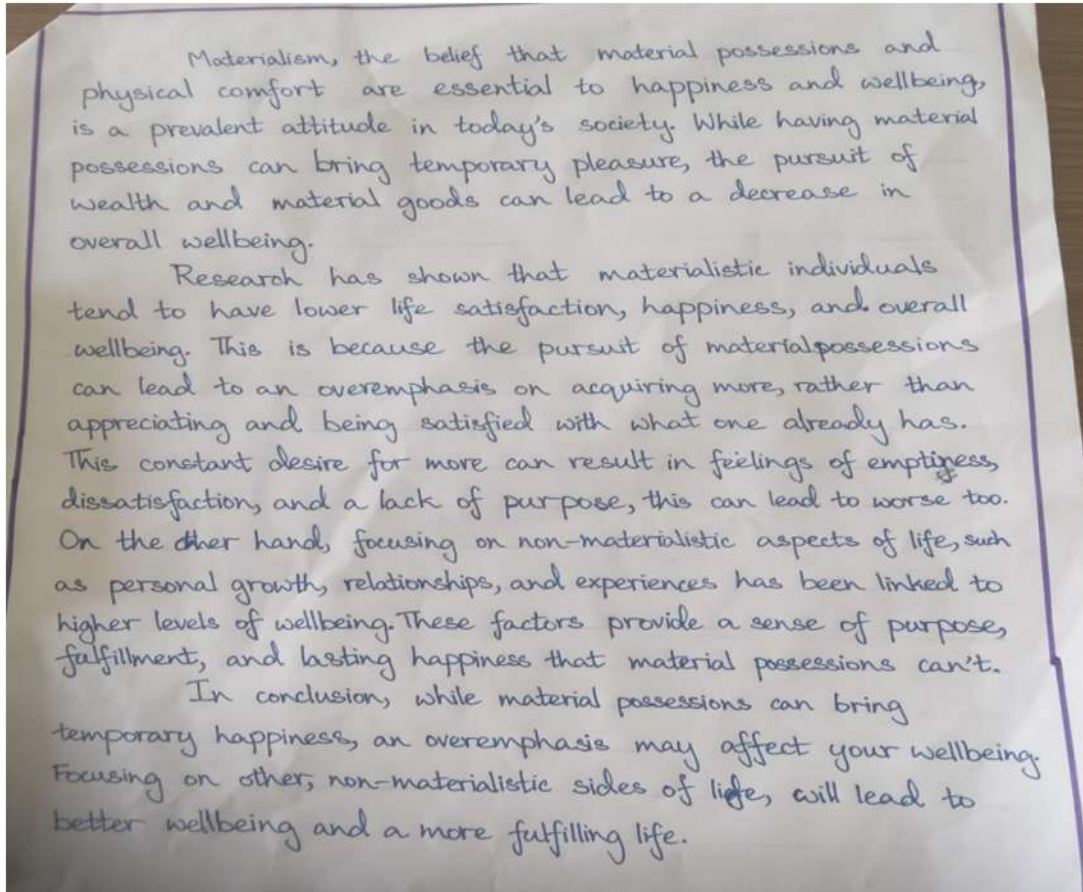 Materialism, the belief that material possessions and
physical comfort are essential to happiness and wellbeing,
is a prevalent attitude in today's society. While having material
possessions can bring temporary pleasure, the pursuit of
wealth and material goods can lead to a decrease in
overall wellbeing.
Research has shown that materialistic individuals
tend to have lower life satisfaction, happiness, and overall
wellbeing. This is because the pursuit of material possessions
can lead to an overemphasis on acquiring more, rather than
appreciating and being satisfied with what one already has.
This constant desire for more can result in feelings of emptiness,
dissatisfaction, and a lack of purpose, this can lead to worse too.
On the other hand, focusing on non-materialistic aspects of life, such
as personal growth, relationships, and experiences has been linked to
higher levels of wellbeing. These factors provide a sense of purpose,
fulfillment, and lasting happiness that material possessions can't.
In conclusion, while material possessions can bring
temporary happiness, an overemphasis may affect your wellbeing.
Focusing on other, non-materialistic sides of life, will lead to
better wellbeing and a more fulfilling life.